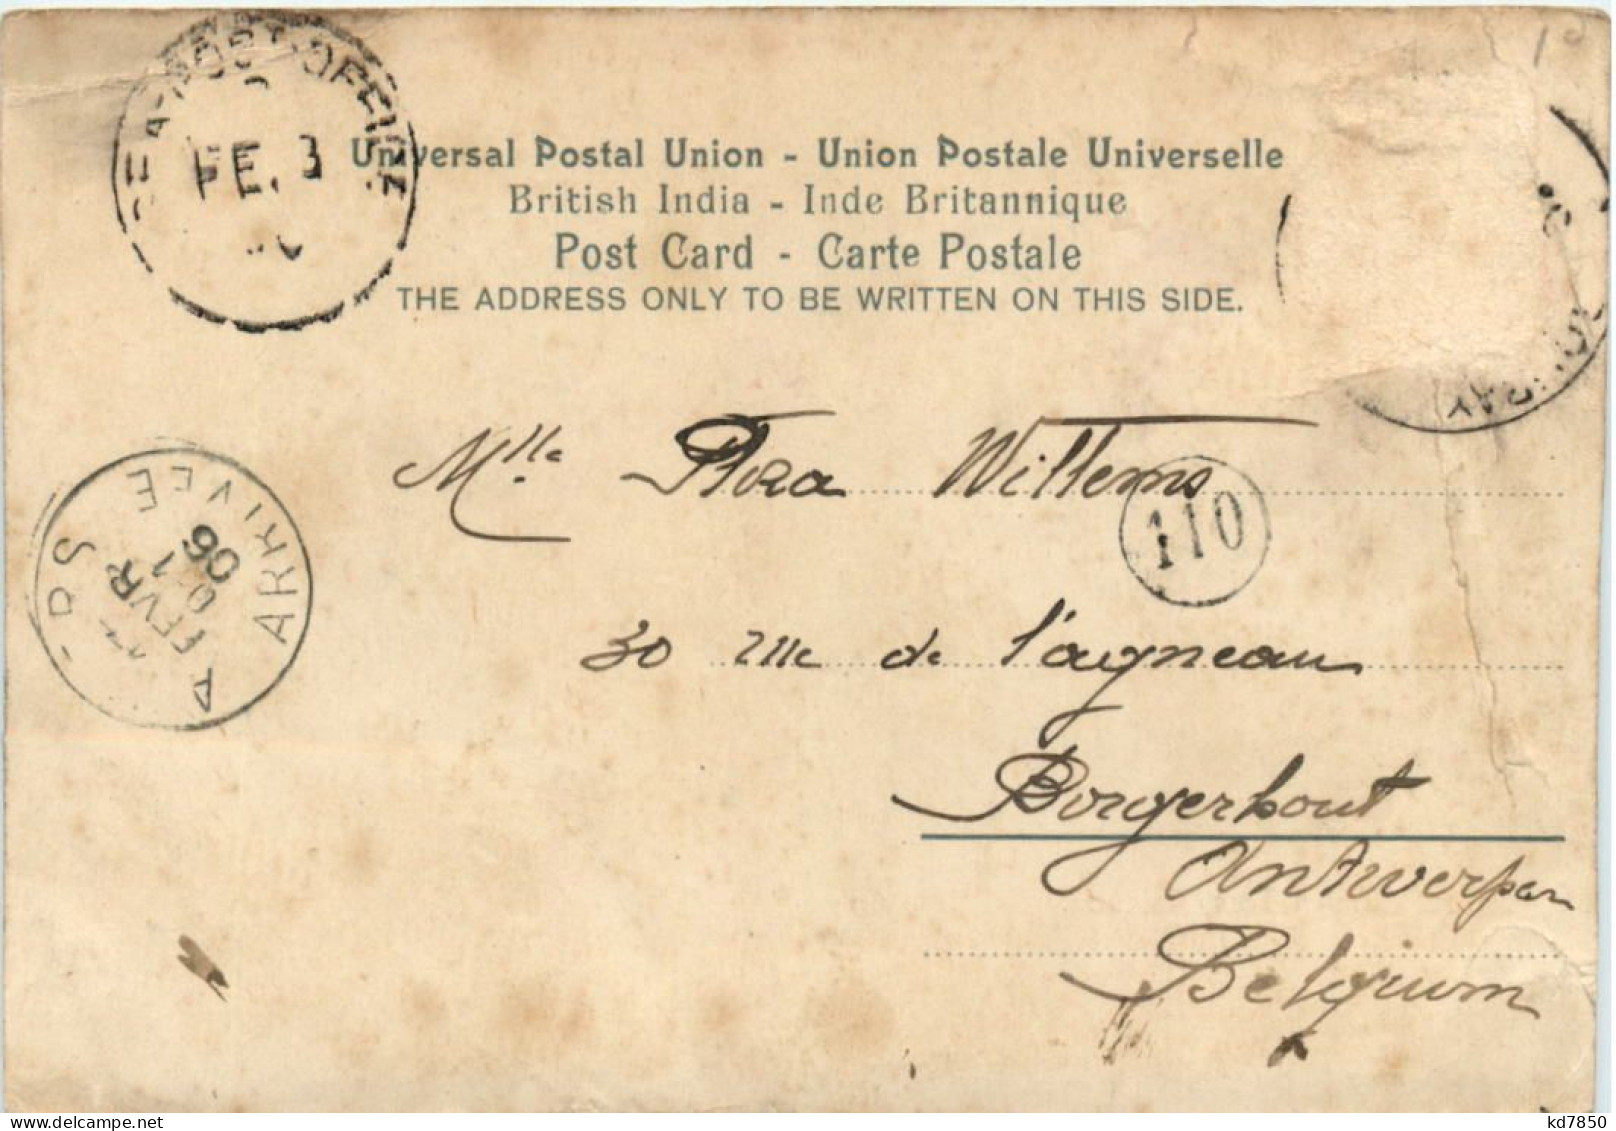 SEA POST OFFICE
FE. 3
Universal Postal Union - Union Postale Universelle
British India - Inde Britannique
Post Card - Carte Postale
THE ADDRESS ONLY TO BE WRITTEN ON THIS SIDE.
Mlle Flora Willems
110
30 rue de l'agneau
Borgerhout
Antwerpen
Belgium
ARRIVÉE
FEVR
06
kd7850